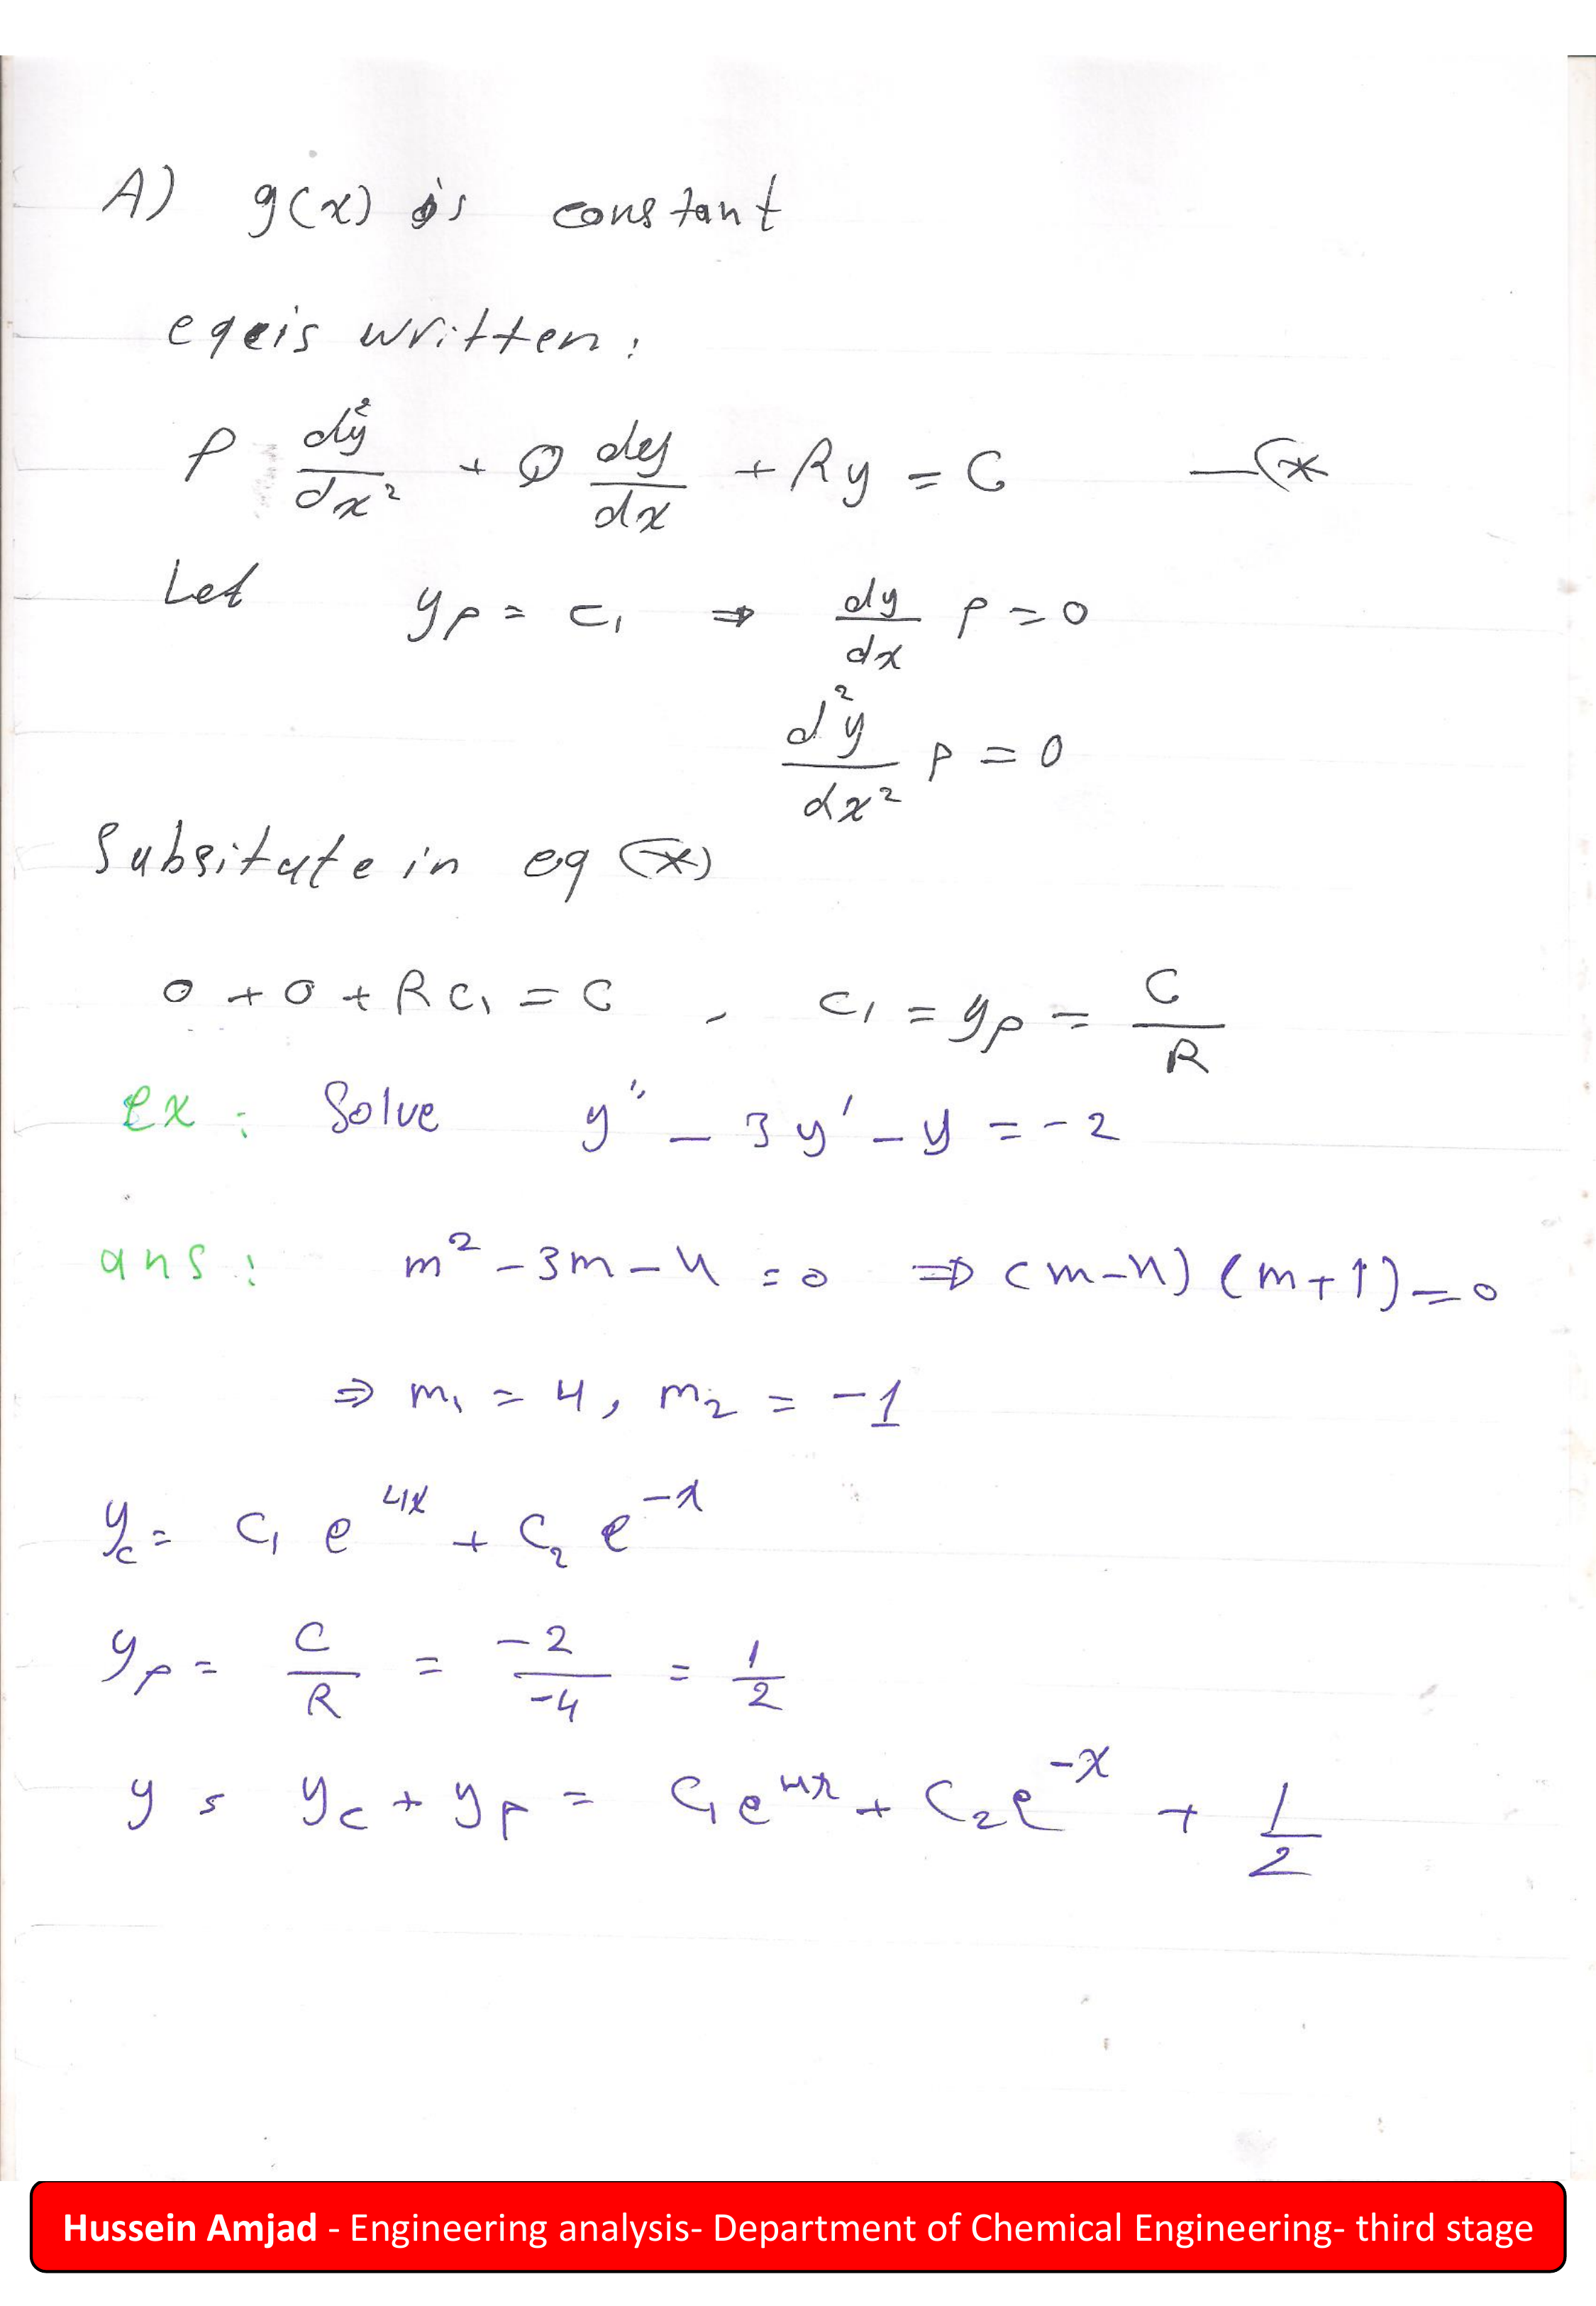 A) g(x) is constant
eq is written:
P d²y/dx² + Q dy/dx + Ry = C —(*
Let yp = c₁ ⇒ dy/dx p = 0
d²y/dx² p = 0
Subsitute in eq (*)
0 + 0 + Rc₁ = C , c₁ = yp = C/R
ex: Solve y'' - 3y' - y = -2
ans: m² - 3m - 4 = 0 ⇒ (m-4)(m+1) = 0
⇒ m₁ = 4, m₂ = -1
yc = c₁ e^4x + c₂ e^-x
yp = C/R = -2/-4 = 1/2
y = yc + yp = c₁e^4x + c₂e^-x + 1/2
Hussein Amjad - Engineering analysis- Department of Chemical Engineering- third stage